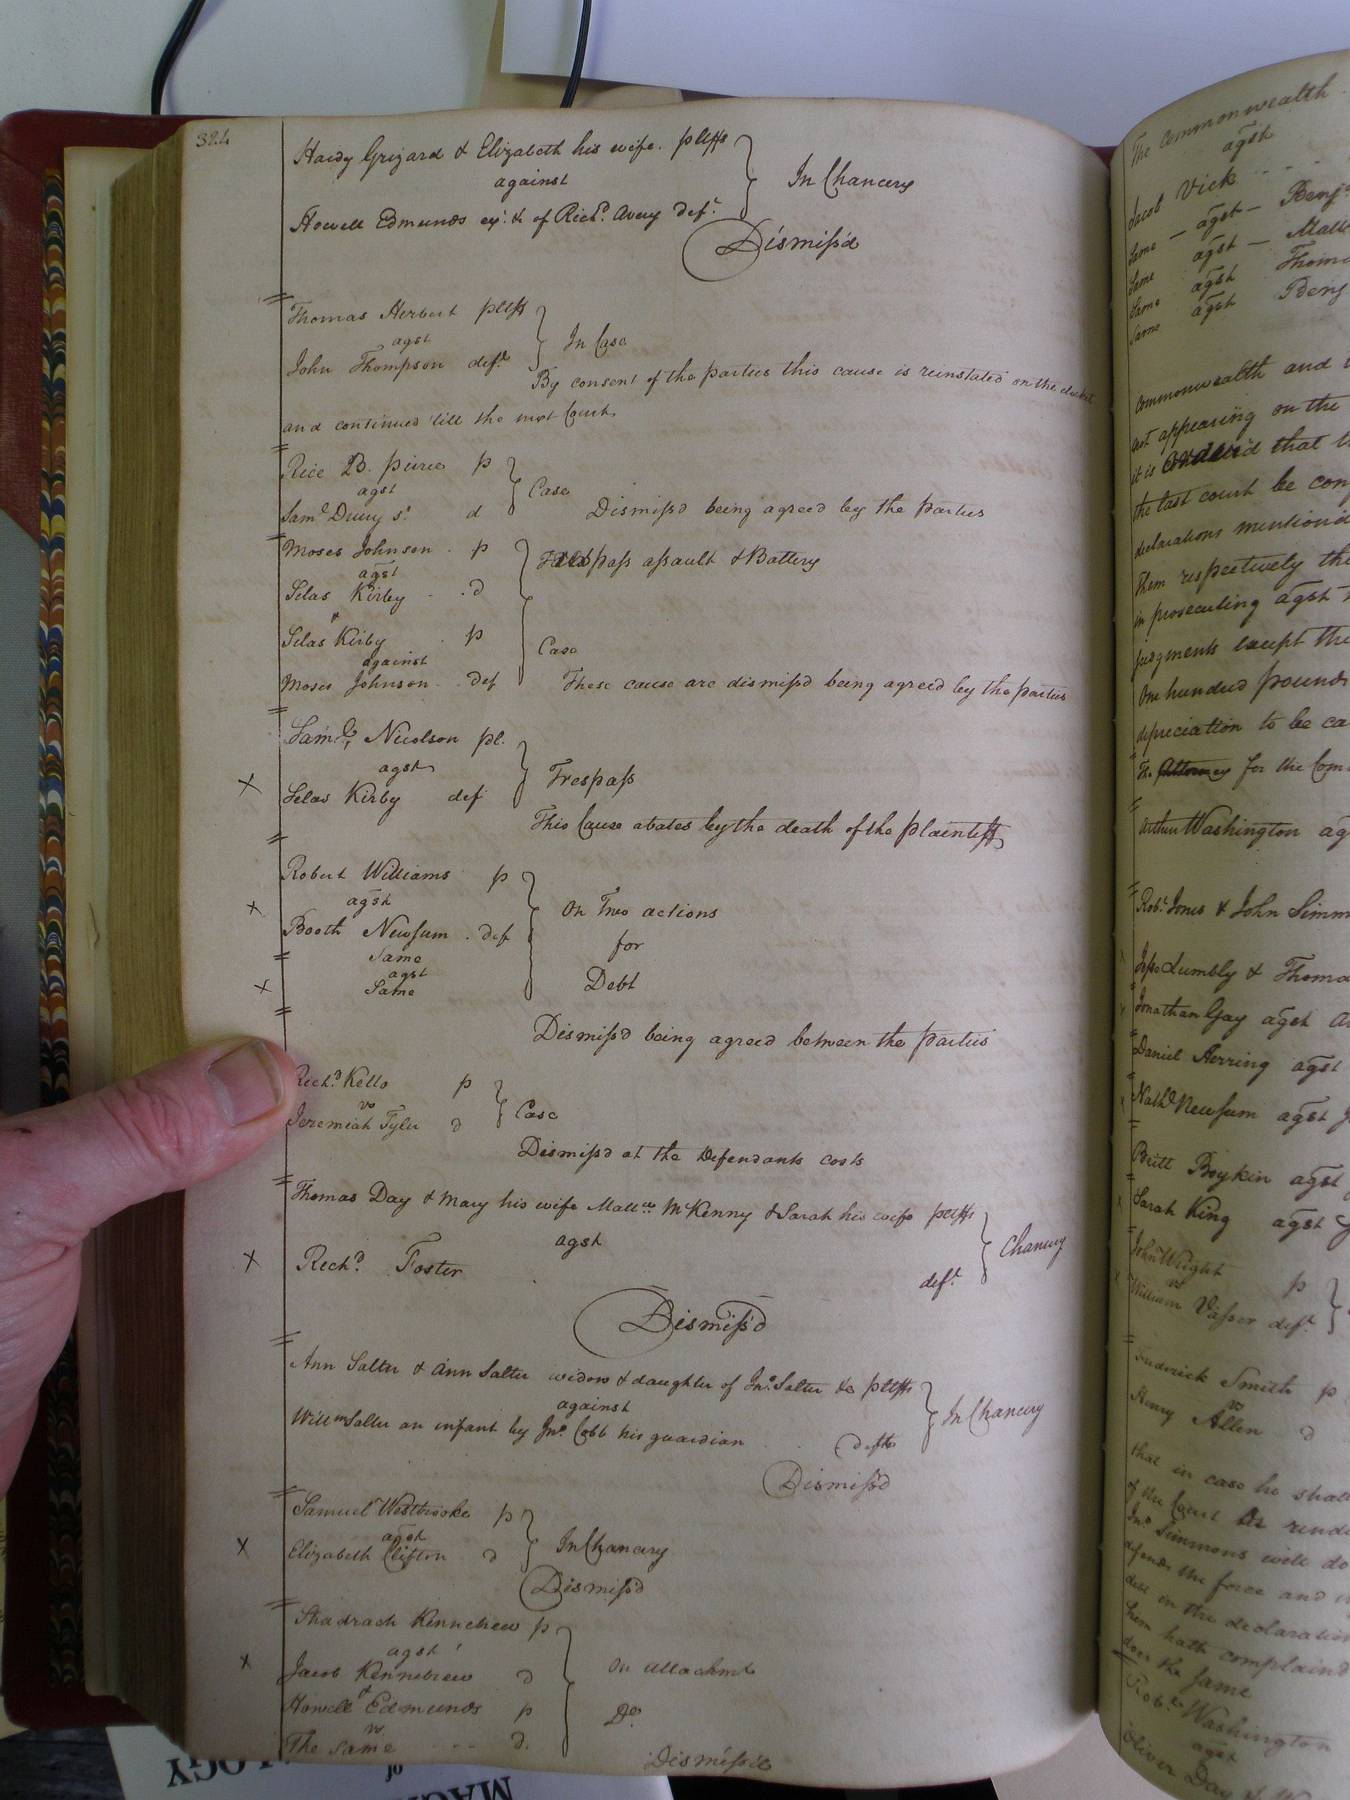 324
Hardy Grizard & Elizabeth his wife. pltffs
against
In Chancery
Howell Edmunds exr. &c of Richd. Avery deft.
Dismiss'd
Thomas Herbert pltff
agst
In Case
John Thompson deft.
By consent of the parties this cause is reinstated on the docket
and continued 'till the next Court.
Rice B. Peirce p
agst
Case
Saml. Drury sr. d
Dismissd being agreed by the parties
Moses Johnson . p
Trespass assault & Battery
agst
Silas Kirby . . d
&
Silas Kirby . p
Case
against
Moses Johnson . def
These cause are dismissd being agreed by the parties
Saml. Nicolson pl.
agst
Trespass
X
Silas Kirby def
This Cause abates by the death of the plaintiff
Robert Williams p
agst
On Two actions
X
Booth Newsum . def
for
Same
agst
Debt
X
Same
Dismissd being agreed between the parties
Richd. Kello p
vs
Case
Jeremiah Tyler d
Dismissd at the Defendants costs
Thomas Day & Mary his wife Mattw. McKenny & Sarah his wife pltffs
agst
Chancery
X
Richd. Foster
deft.
Dismiss'd
Ann Salter & Ann Salter widow & daughter of Jno. Salter &c pltffs
against
In Chancery
Willm Salter an infant by Jno. Cobb his guardian . . defts
Dismiss'd
Samuel Westbrooke p
agst
In Chancery
X
Elizabeth Clifton d
Dismiss'd
Shadrach Kennebrew p
agst
On attachmt
X
Jacob Kennebrew d
&
Howell Edmunds p
Do.
vs.
The same - - - d.
Dismiss'd
The Commonwealth
agst
Jacob Vick - -
Same - agst - Benj
Same agst - Matt
Same agst Thoma
Same agst Benj
Commonwealth and
not appearing on the
it is Ordered that
the last court be con
declarations mentiond
them respectively the
in prosecuting agst
judgments except the
One hundred pounds
depreciation to be ca
The Attorney for the Com
Arthur Washington ag
Robt. Jones & John Simm
Jesse Lumbly & Thoma
Jonathan Gay agst
Daniel Herring agst
Nathl Newsum agst
Britt Boykin agst
Sarah King agst
John Wright p
vs
William Vasser deft.
Frederick Smith p
vs
Henry Allen d
that in case he shall
of the Court be rende
Jno. Simmons will do
defends the force and
debt in the declaration
him hath complaind
does the same
Robt. Washington
agst
Oliver Day